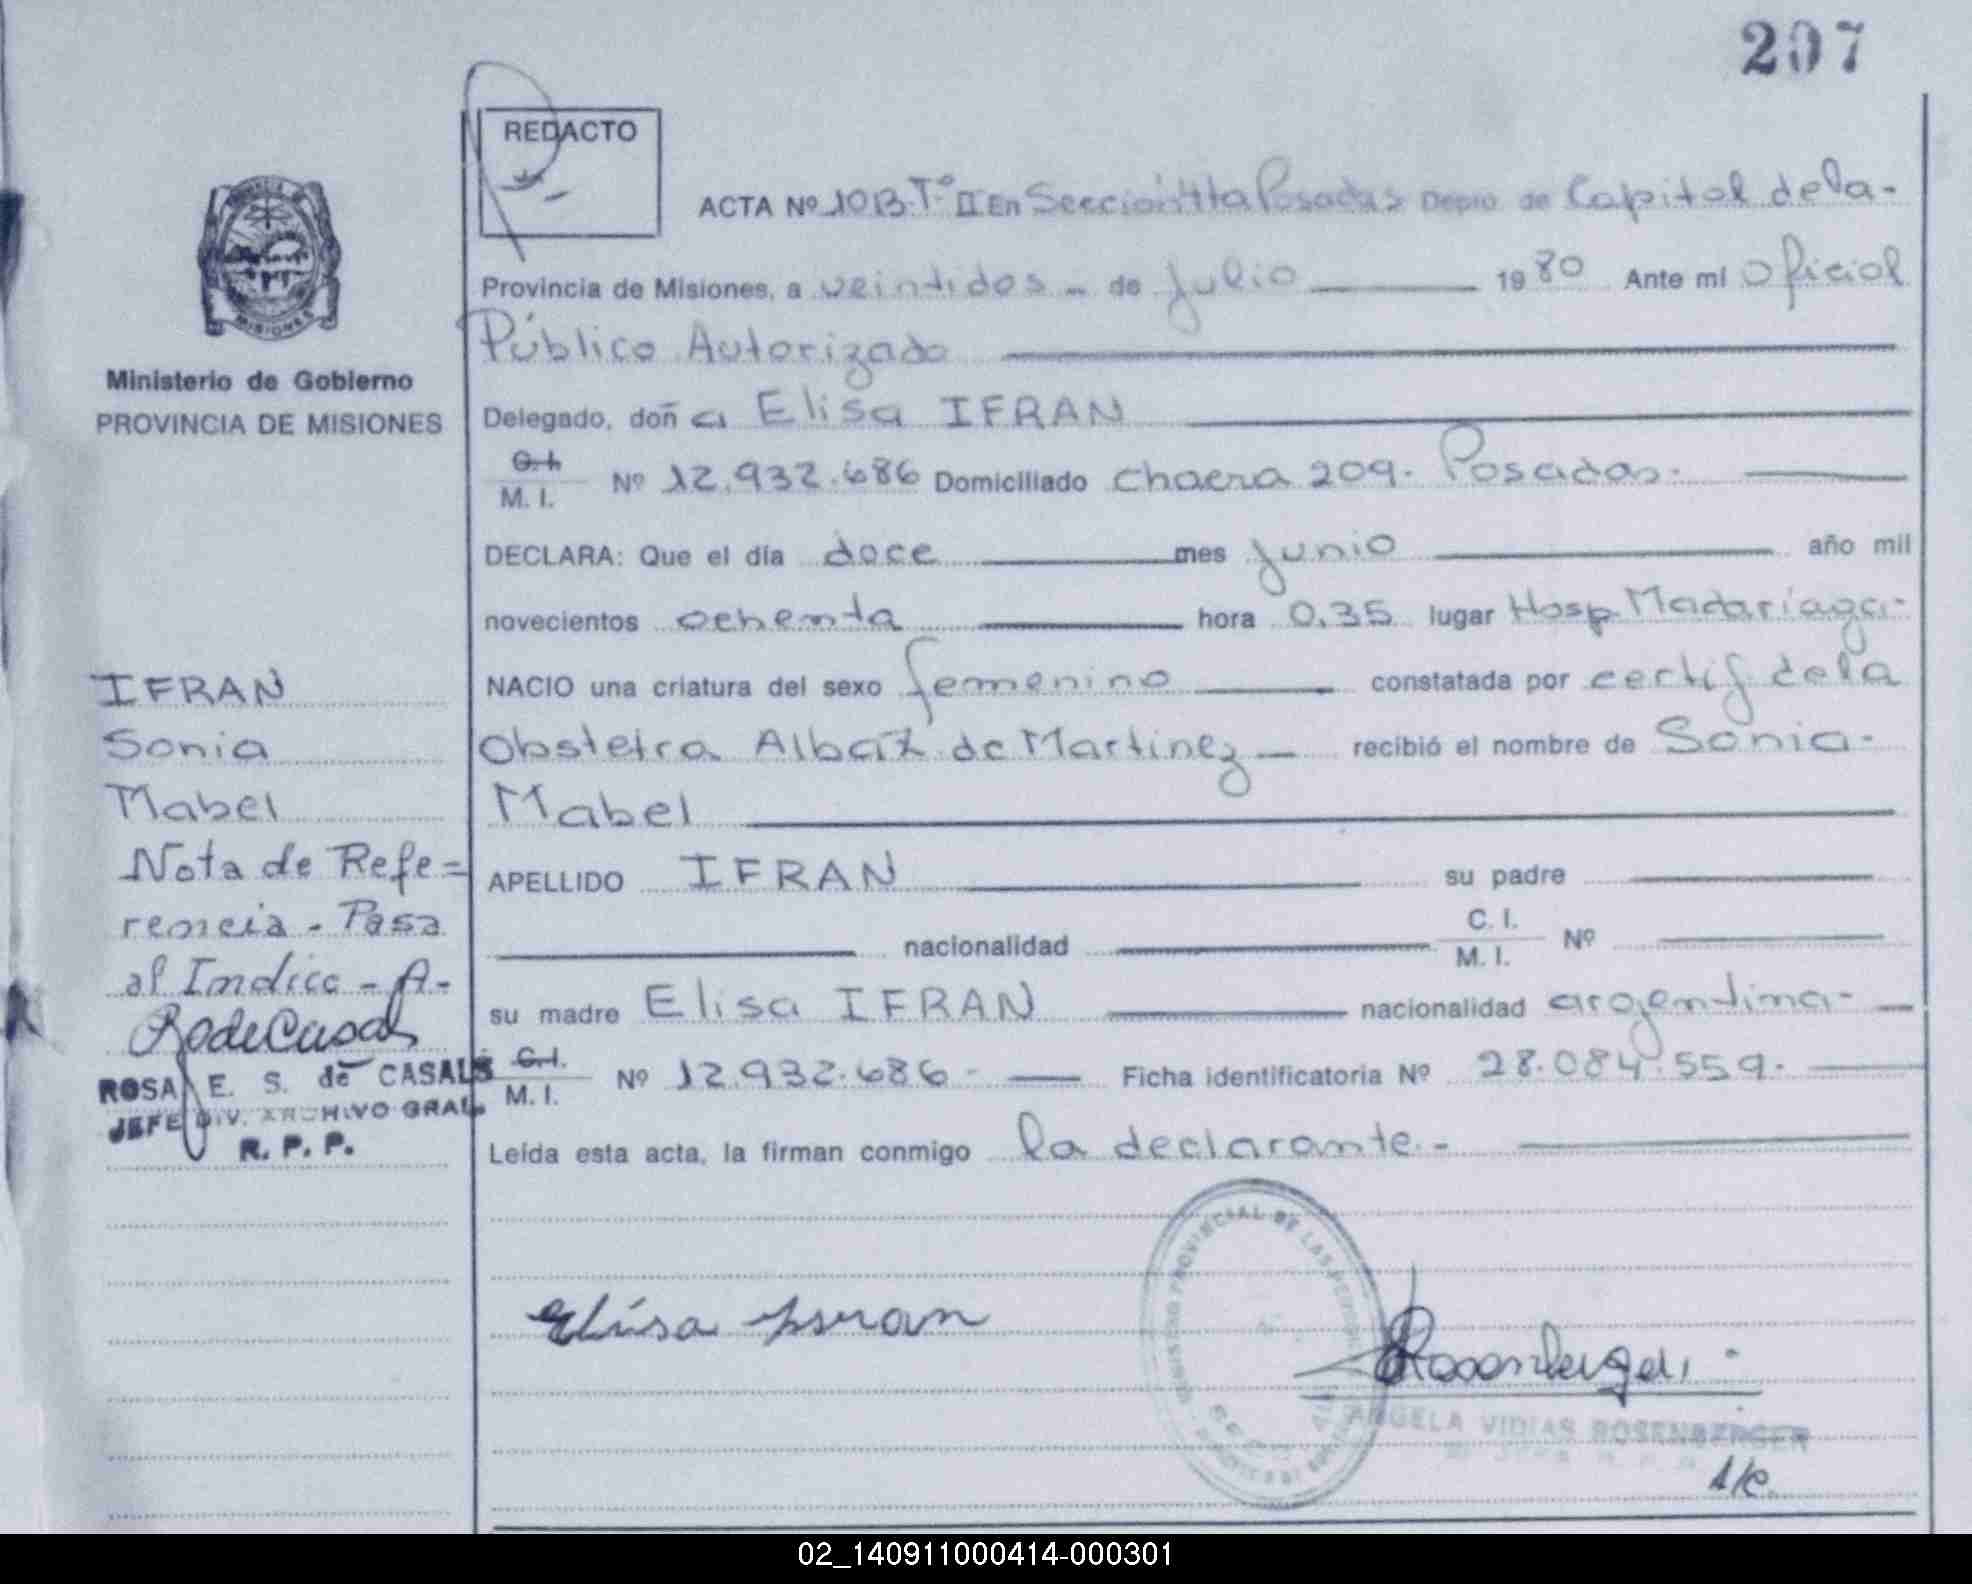 207
REDACTO
ACTA Nº 1013. Tº II En Sección 4ta Posadas Depto. de Capital de la-
Provincia de Misiones, a veintidos - de Julio 19 80 Ante mí Oficial
Público Autorizado
Delegado, doñ a Elisa IFRAN
C. I.
M. I. Nº 12.932.686 Domiciliado Chacra 209. Posadas.
DECLARA: Que el día doce mes Junio año mil
novecientos ochenta hora 0,35 lugar Hosp. Madariaga-
NACIO una criatura del sexo femenino constatada por certif. de la
Obstetra de Martinez - recibió el nombre de Sonia-
Mabel
APELLIDO IFRAN su padre
nacionalidad C. I. M. I. Nº
su madre Elisa IFRAN nacionalidad argentina-
C. I.
M. I. Nº 12.932.686- Ficha identificatoria Nº 28.084.559.
Leída esta acta, la firman conmigo la declarante.-
Elisa Ifran
REGISTRO PROVINCIAL DE LAS PERSONAS
ANGELA VIDIAS ROSENBERGER
A/C.
MISIONES
Ministerio de Gobierno
PROVINCIA DE MISIONES
IFRAN
Sonia
Mabel
Nota de Refe=
rencia - Pasa
al Indice - A-
ROSA E. S. de CASALS
JEFE DIV. ARCHIVO GRAL.
R. P. P.
02_140911000414-000301